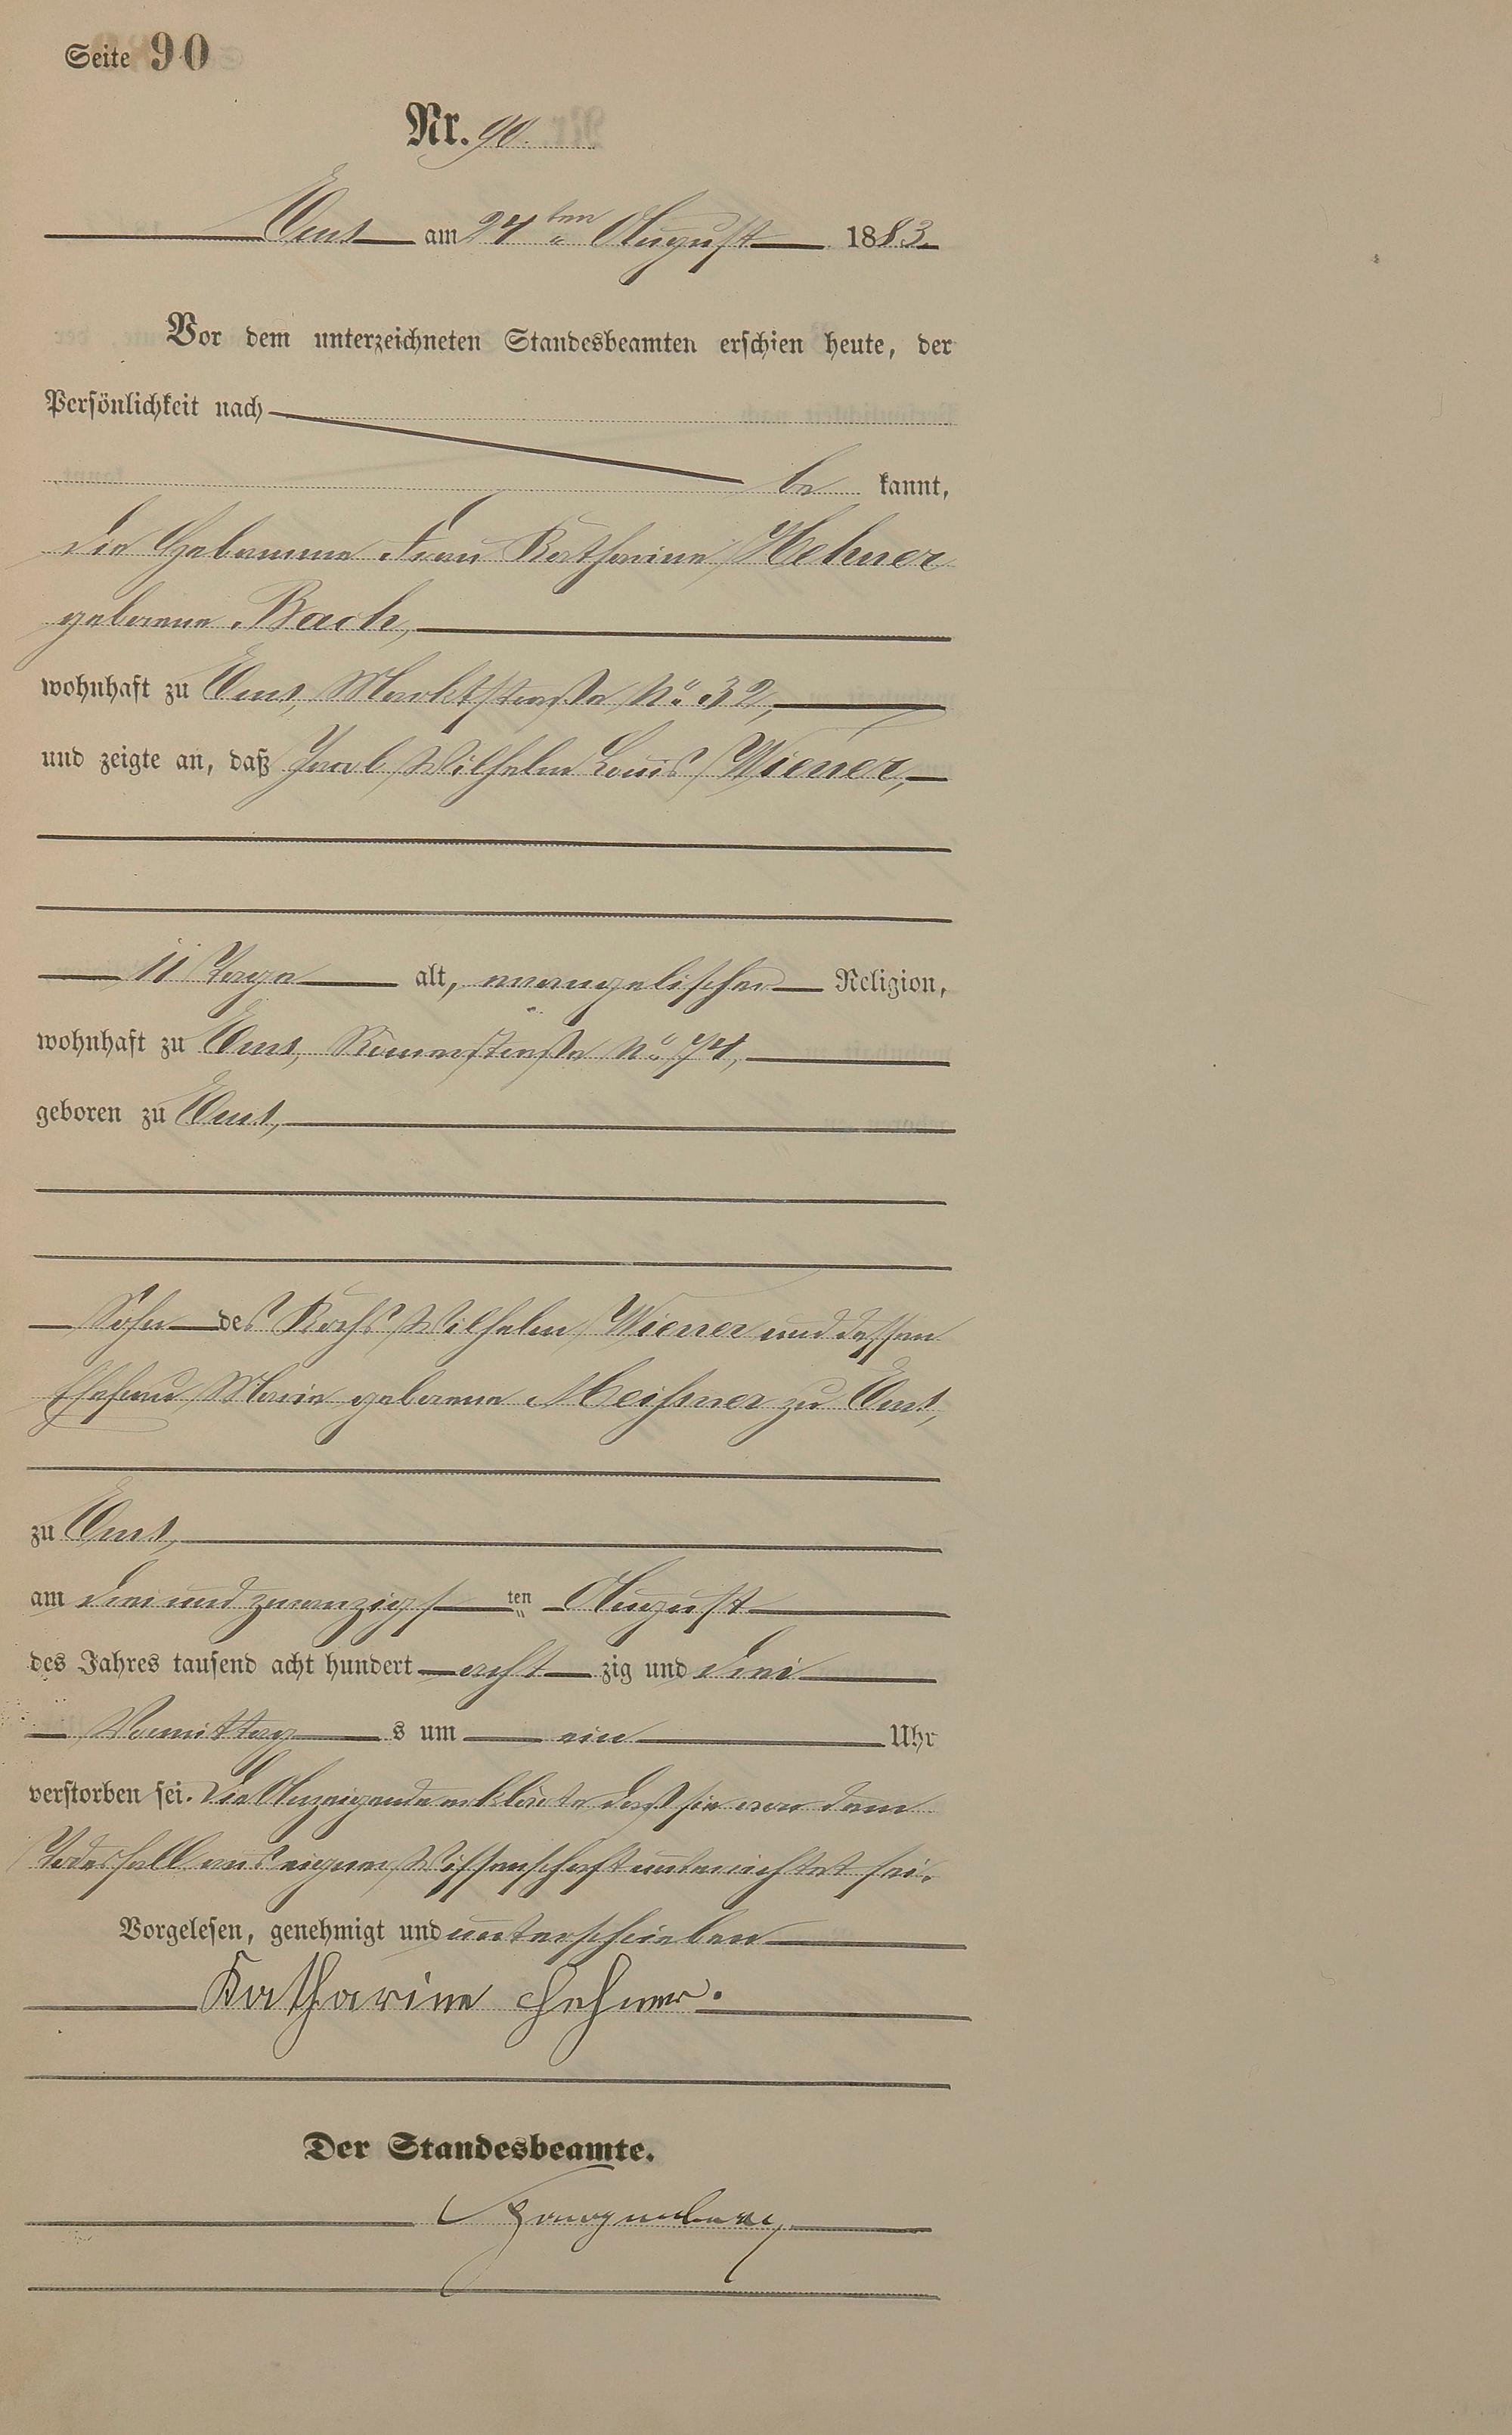 Seite 90
Nr. 90.
Ems am 24ten August 1883.
Vor dem unterzeichneten Standesbeamten erschien heute, der
Persönlichkeit nach
be kannt,
die Hebamme Frau Katharine Hehner
geborene Bach,
wohnhaft zu Ems, Marktstraße No. 32,
und zeigte an, daß Jacob Wilhelm Louis Wiener,
11 Tage alt, evangelischer Religion,
wohnhaft zu Ems, Römerstraße No. 74,
geboren zu Ems,
Sohn des Kochs Wilhelm Wiener und dessen
Ehefrau Marie geborene Meißner zu Ems,
zu Ems,
am drei und zwanzigs ten August
des Jahres tausend acht hundert acht zig und drei
Vormittag s um ein Uhr
verstorben sei. Die Anzeigende erklärte daß sie von dem
Todesfall aus eigner Wissenschaft unterrichtet sei.
Vorgelesen, genehmigt und unterschrieben
Katharine Hehner.
Der Standesbeamte.